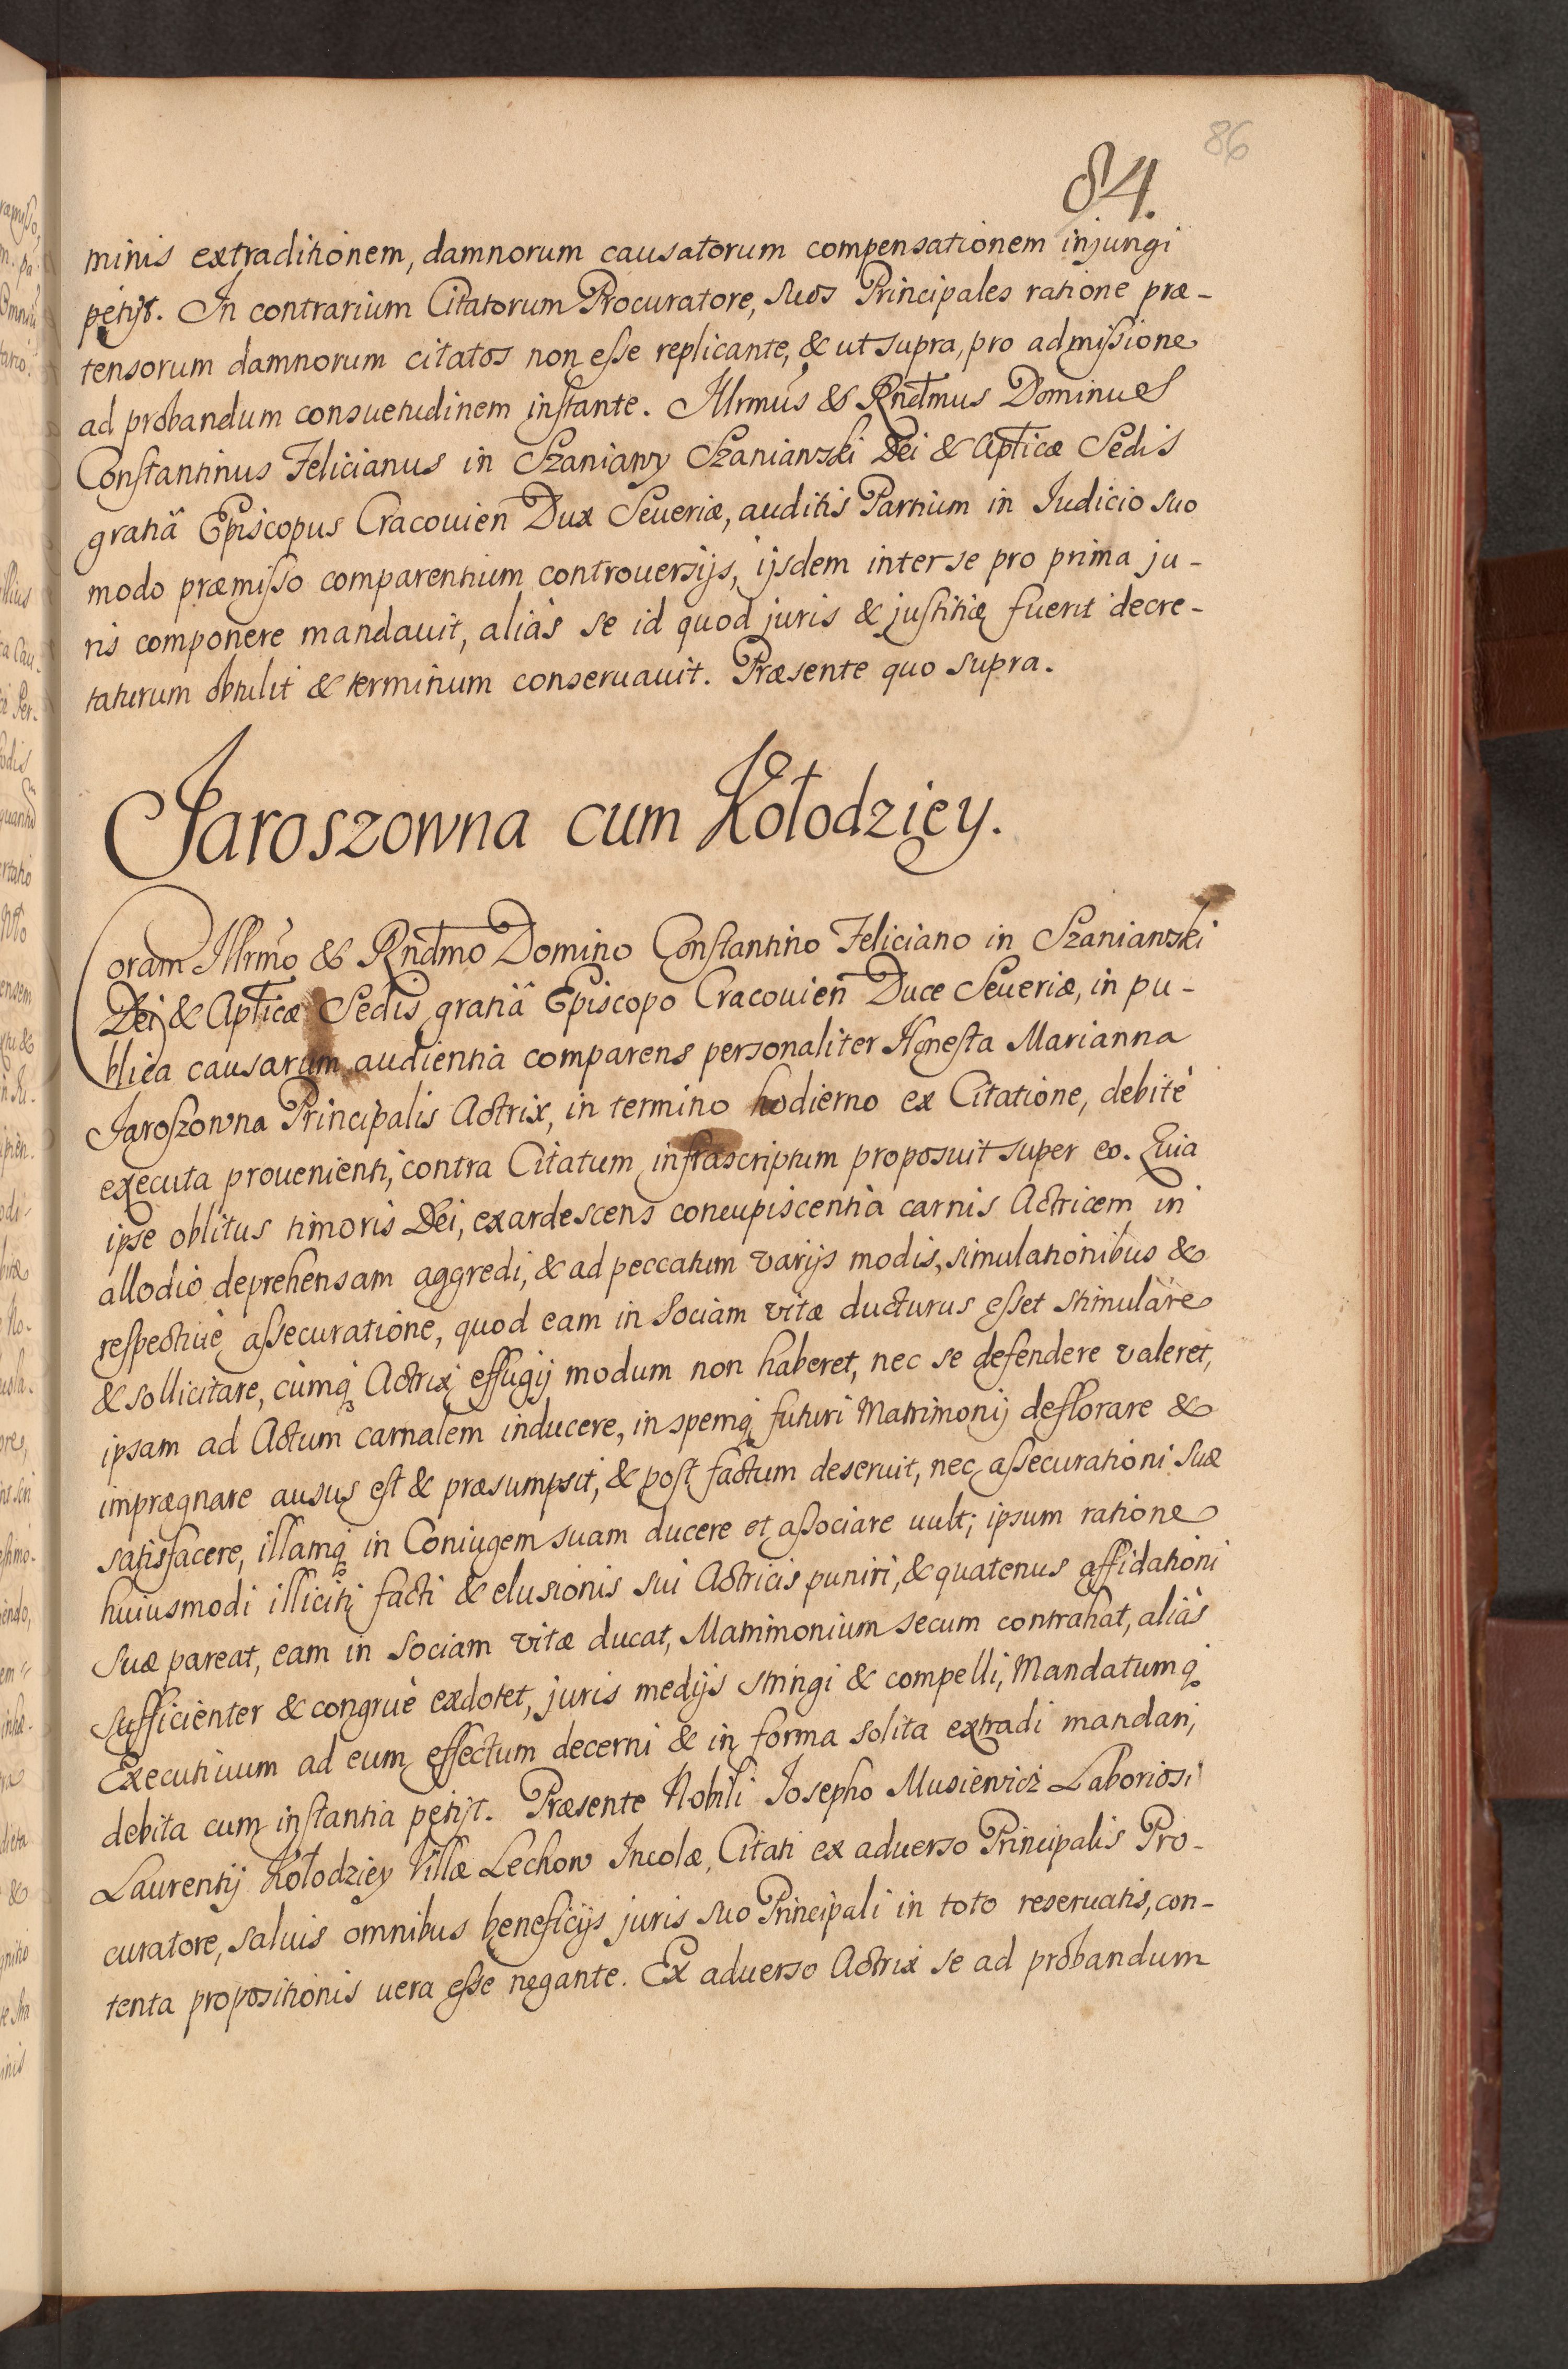 86
84.
minis extraditionem, damnorum causatorum compensationem injungi
petijt. In contrarium Citatorum Procuratore, suos Principales ratione præ-
tensorum damnorum citatos non esse replicante, & ut supra, pro admissione
ad probandum consuetudinem instante. Illrmus & Rndmus Dominus
Constantinus Felicianus in Szaniawy Szaniawski Dei & Apticæ Sedis
gratiâ Episcopus Cracouien Dux Seueriæ, auditis Partium in Iudicio suo
modo præmisso comparentium controuersijs, ijsdem inter se pro prima ju-
ris componere mandauit, aliàs se id quod juris & justitiæ fuerit decre-
taturum obtulit & terminum conseruauit. Præsente quo supra.
Jaroszowna cum Kołodziey.
Coram Illrmo & Rndmo Domino Constantino Feliciano in Szaniawski
Dei & Apticæ Sedis gratiâ Episcopo Cracouien Duce Seueriæ, in pu-
blica causarum audientia comparens personaliter Honesta Marianna
Jaroszowna Principalis Actrix, in termino hodierno ex Citatione, debitè
executa prouenienti, contra Citatum infrascriptum proposuit super eo. Quia
ipse oblitus timoris Dei, exardescens concupiscentia carnis Actricem in
allodio deprehensam aggredi, & ad peccatum varijs modis, simulationibus &
respectiuè assecuratione, quod eam in Sociam vitæ ducturus esset stimulare
& sollicitare, cùmq Actrix effugij modum non haberet, nec se defendere valeret,
ipsam ad Actum carnalem inducere, in spemq futuri Matrimonij deflorare &
imprægnare ausus est & præsumpsit, & post factum deseruit, nec assecurationi suæ
satisfacere, illamq in Coniugem suam ducere et associare uult; ipsum ratione
huiusmodi illiciti facti & elusionis sui Actricis puniri, & quatenus affidationi
suæ pareat, eam in Sociam vitæ ducat, Matrimonium secum contrahat, aliàs
sufficienter & congruè exdotet, juris medijs stringi & compelli, Mandatumq
Executiuum ad eum effectum decerni & in forma solita extradi mandari,
debita cum instantia petijt. Præsente Nobili Iosepho Musiewicz Laboriosi
Laurentij Kołodziey Villæ Lechow Incolæ, Citati ex aduerso Principalis Pro-
curatore, saluis omnibus beneficijs juris suo Principali in toto reseruatis, con-
tenta propositionis uera esse negante. Ex aduerso Actrix se ad probandum